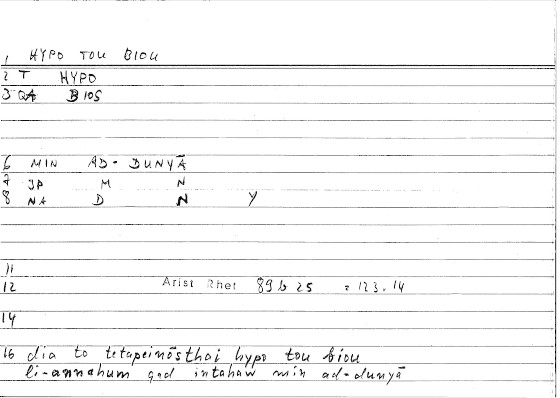 1 HYPO TOU BIOU
2 T HYPO
3 QA BIOS
6 MIN AD-DUNYĀ
7 JP M N
8 NA D N Y
11
12 Arist Rhet 89b25 = 123.14
14
16 dia to tetapeinōsthai hypo tou biou
li-annahum qad intahaw min ad-dunyā